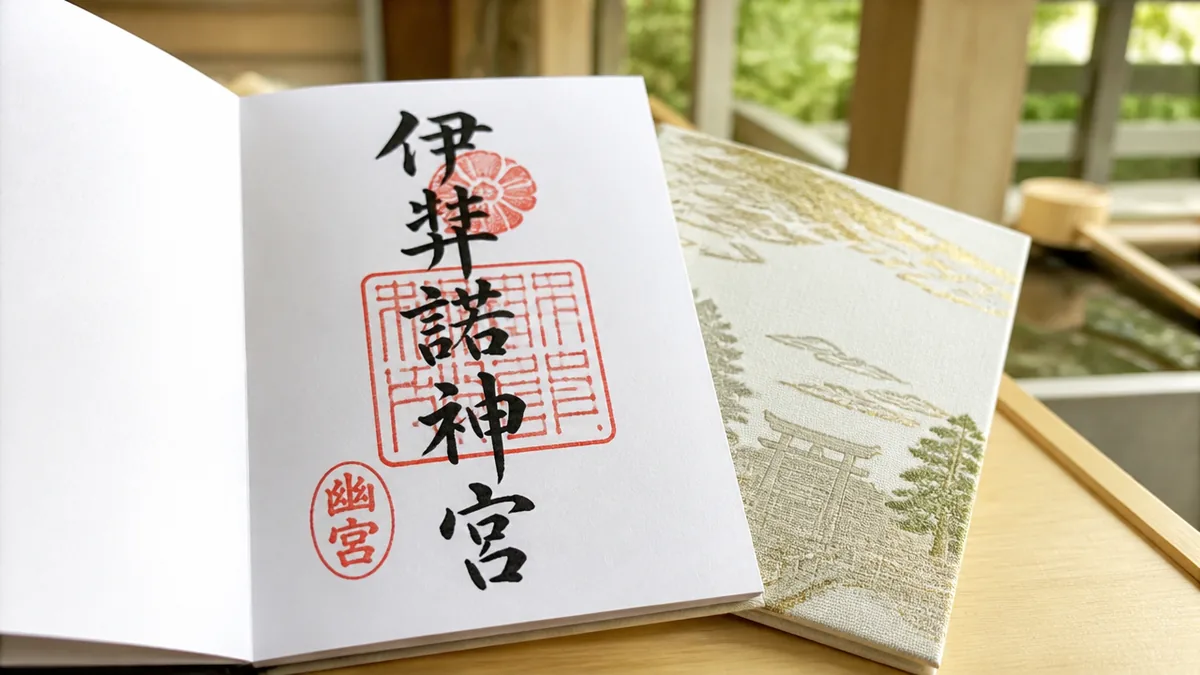 伊弉諾神宮
幽宮